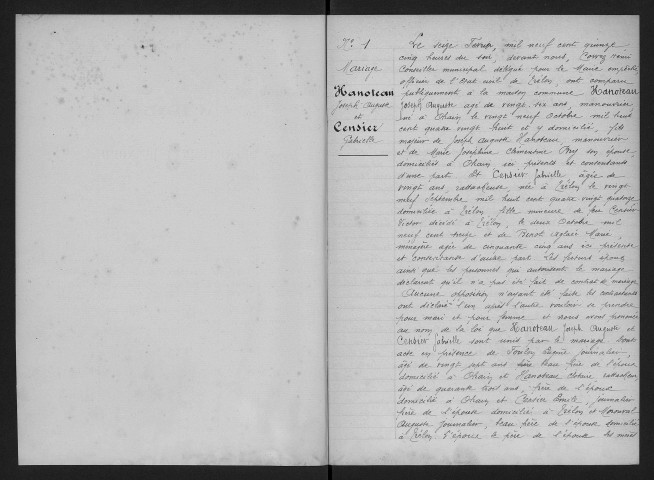 N° 1
Mariage
Hanoteau
Joseph Auguste
et
Censier
Gabrielle
Le seize Février, mil neuf cent quinze
cinq heures du soir, devant nous,
Conseiller municipal délégué pour le Maire empêché
officier de l'Etat civil de Trélon, ont comparu
publiquement à la maison commune Hanoteau
Joseph Auguste agé de vingt six ans, manouvrier
né à Ohain le vingt neuf Octobre mil huit
cent quatre vingt huit et y domicilié, fils
majeur de Joseph Auguste Hanoteau, manouvrier
et de Marie Joséphine Clémentine son épouse,
domiciliés à Ohain ici présents et consentants
d'une part. Et Censier Gabrielle âgée de
vingt ans, rattacheuse, née à Trélon le vingt
neuf Septembre mil huit cent quatre vingt quatorze
domiciliée à Trélon fille mineure de feu Censier
Victor décédé à Trélon, le deux Octobre mil
neuf cent treize et de
ménagère agée de cinquante cinq ans ici présente
et consentante d'autre part. Les futurs époux
ainsi que les personnes qui autorisent le mariage
déclarent qu'il n'a pas été fait de contrat de mariage
Aucune opposition n'ayant été faite les contractants
ont déclaré l'un après l'autre vouloir se prendre
pour mari et pour femme et nous avons prononcé
au nom de la loi que Hanoteau Joseph Auguste et
Censier Gabrielle sont unis par le mariage. Dont
acte en présence de Eugène journalier,
agé de vingt sept ans beau frère de l'époux
domicilié à Ohain et Hanoteau
agé de quarante trois ans, frère de l'époux
domicilié à Ohain et Censier journalier
frère de l'épouse domicilié à Trélon et
Auguste journalier, beau frère de l'épouse domicilié
à Trélon. L'époux le père de l'époux les